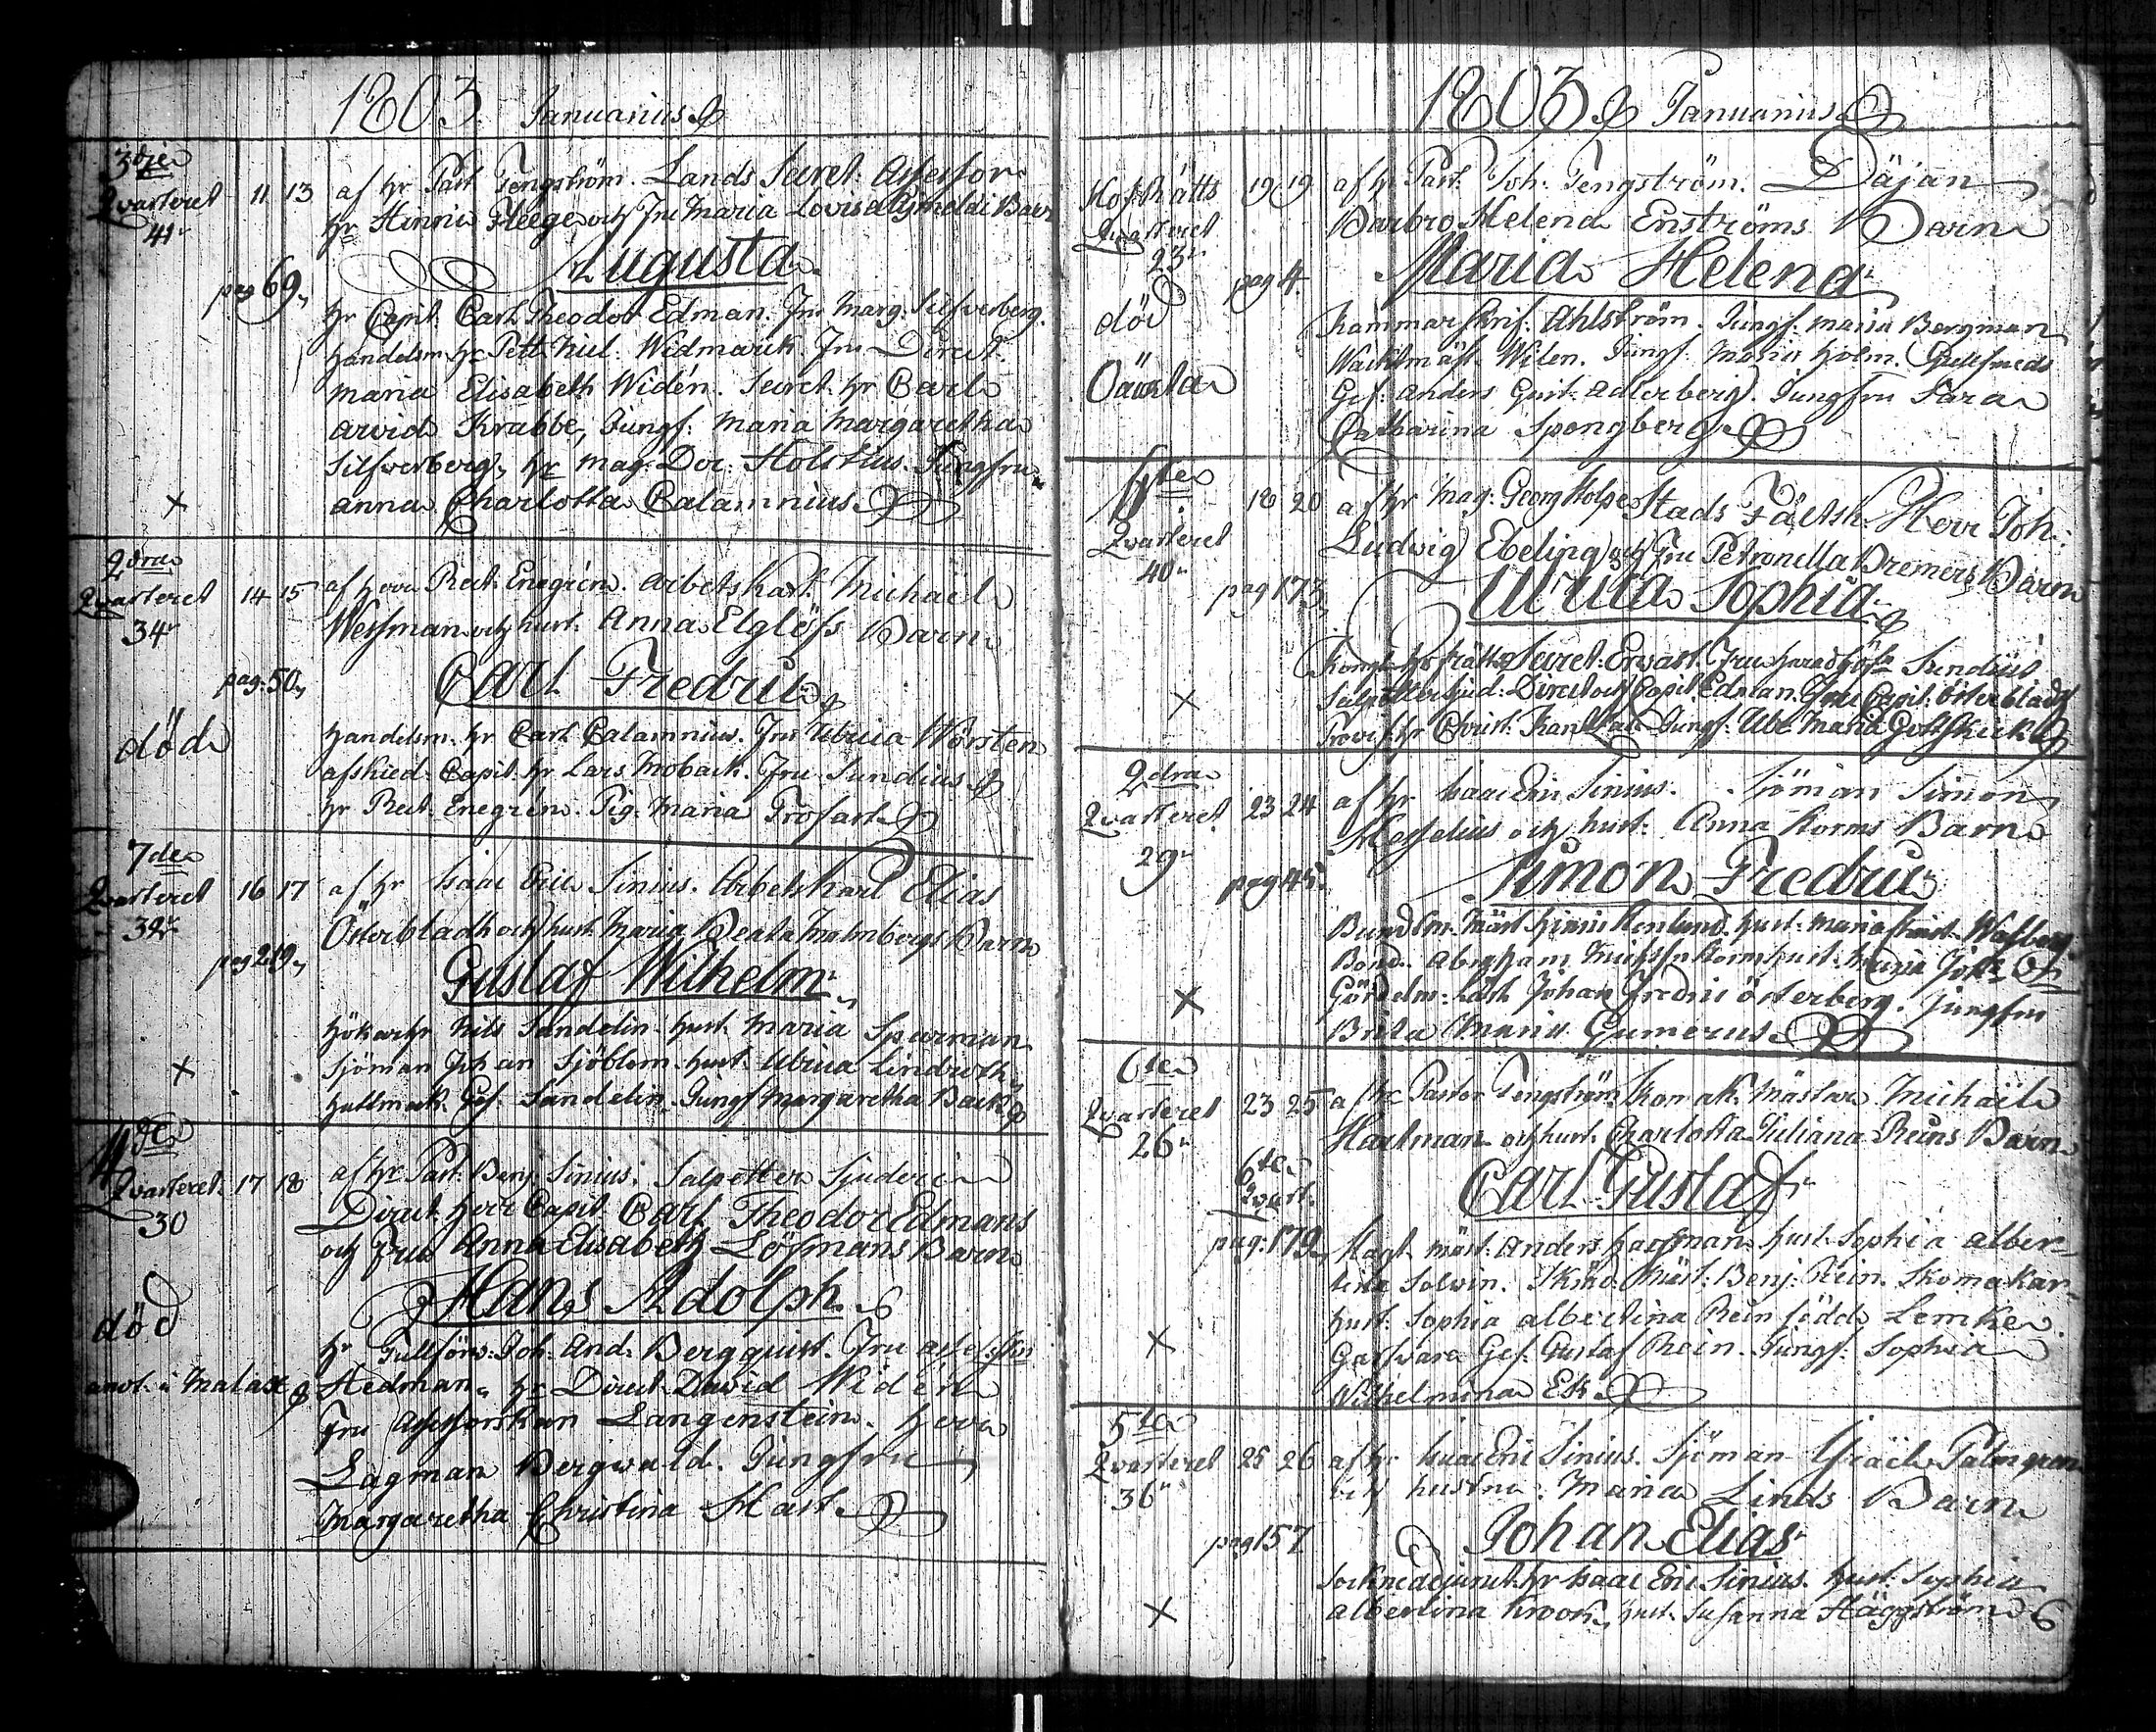 1803. Januarius
3dje
Qvarteret 11 13 af hr Past Tengström. Lands Secret. Assessor
41 hr Hinric Fleege och Fru Maria Lovisa Barn
pag 69 Augusta
hr Capit. Carl Theodor Edman. Fru Marg. Silfverberg.
Handelsm. hr Pett. Niel. Widmarck. Fru Direct.
Maria Elisabeth Widén. Secret. hr Carl
Arvid Krabbe, Jungf: Maria Margaretha
Silfverberg, hr Mag. Doc. Holstius. Jungfru
x Anna Charlotta Calamnius
2dra
Qvarteret 14 15 af herr Rect. Enegrén. Arbetskarl Michael
34 Wessman och hust. Anna Elglöfs Barn
pag. 50 Carl Fredric
död Handelsm. hr Carl Calamnius. Fru Ulrica Wörsten
afskied. Capit. hr Lars Moback. Fru Sundius
hr Rect. Enegrén. Pig. Maria Trofast
7de
Qvarteret 16 17 af hr Isaac Eric Sinius. Arbetskarl Elias
32 Österbladh och hust. Maria Beata Malmbergs Barn
pag 219 Gustaf Wilhelm
Hökar hr Nils Sandelin. hust. Maria Sparman
x Sjöman Johan Sjöblom. hust. Ulrica Lindroth
Hattmak. Gef. Sandelin. Jungf Margaretha Back
4de
Qvarteret 17 18 af hr Past. Benj. Sinius. Salpetter Sjuderi
30 Direct. herr Capit. Carl Theodor Edmans
och Fru Anna Elisabeth Löfmans Barn
död Hans Adolph
hr Tullförv. Joh. And. Bergquist. Fru
annot. i Malax Hedman, hr Direct. David Widén
Fru Assessorskan Langenstein. Herr
Lagman Bergwald. Jungfru
Margaretha Christina Hast
1803 Januarius
Hofrätts 19 19 af hr Past. Joh. Tengström. Däjan
Qvarteret Barbro Helena Enströms Barn
23 pag 4. Maria Helena
död Kammarskrif. Ahlström. Jungf. Maria Bergman
Wacktmäst. Wilen. Jungf. Maria Holm.
Oäckta Gef. Anders Gust. Adlerberg. Jungfru Sara
Catharina Spongberg
6te 18 20 af hr Mag. Georg Stolpe Stads Fältsk. Herr Joh:
Qvarteret Ludwig Ebeling och Fru Petronella Bremers Barn
40 pag 173 Ulrica Sophia
Kongl. Hofrätts Secret. Ervast. Fru Sundius
x Salpettersjud. Direct och Capit Edman. Fru Capit. Österbladh
Provis. hr Christ. Jungf. Ulr. Maria Gottskick
2dra
Qvarteret 23 24 af hr Isaac Eric Sinius. Sjöman Simon
29 Hesselius och hust. Anna Korms Barn
pag 45. Simon Fredric
hust. Maria Christ. Wasberg
Bond. Abraham
x Johan Fredric Österberg. Jungfru
Brita Maria Gumerus
6te
Qvarteret 23 25 af hr Pastor Tengström. Skomak. Mästare Michaël
26 Hartman och hust. Charlotta Juliana Reins Barn
6te Qvart. Carl Gustaf
pag. 179 mäst. Anders Hartman. hust. Sophia Alber-
tina Solvin. Mäst. Benj. Rein. Skomakar
hust. Sophia Albertina Rein född Lemke.
x Garfvare Gef. Gustaf Rein. Jungf. Sophia
Wilhelmina Ek
5te
Qvarteret 25 26 af hr Isaac Eric Sinius. Sjöman Israël Palmgren
36 och hustru Maria Linds Barn
pag 157 Johan Elias
hr Isaac Eric Sinius. hust. Sophia
x Albertina Krook, hust. Susanna Häggström